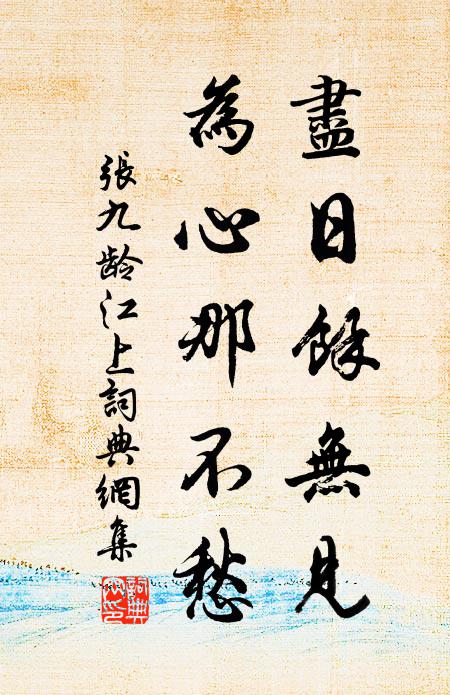 盡日餘無見
為心那不愁
張九齡江上詞典網集